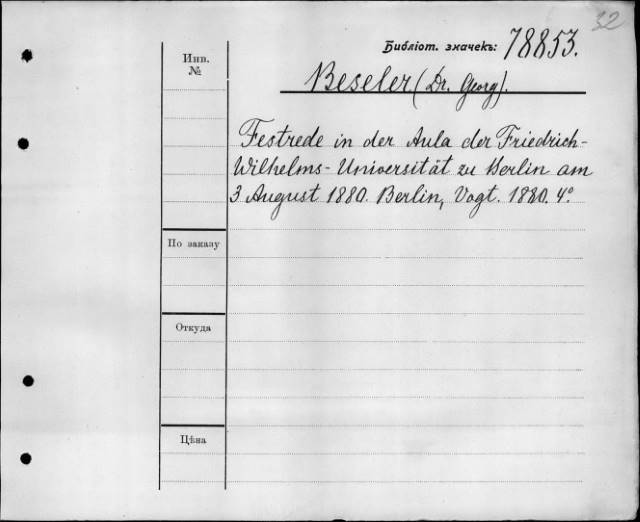 32
Библіот. значекъ: 78853.
Инв.
№
Beseler (Dr. Georg).
Festrede in der Aula der Friedrich-
Wilhelms-Universität zu Berlin am
3 August 1880. Berlin, Vogt. 1880. 4º
По заказу
Откуда
Цѣна